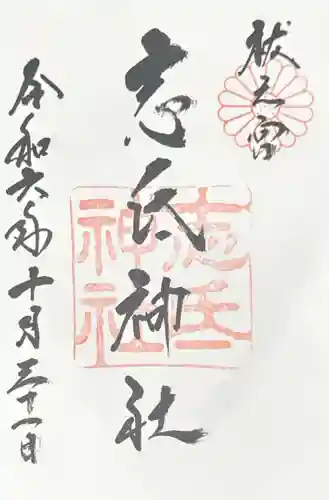 祓之宮
志氏神社
志氏神社
令和六年十月三十一日